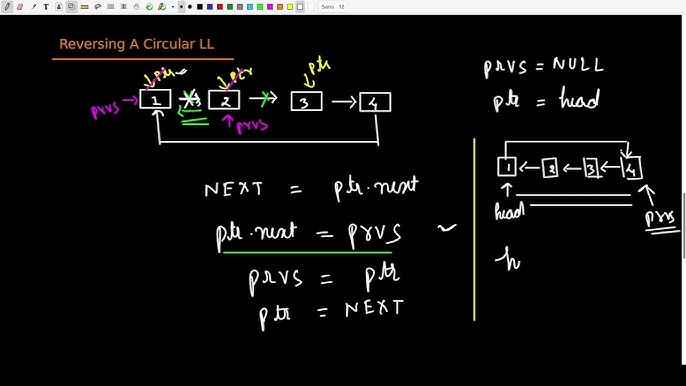 Sans 12
Reversing A Circular LL
ptr ptr ptr
prvs → 1 2 3 4
prvs
NEXT = ptr.next
ptr.next = prvs
prvs = ptr
ptr = NEXT
prvs = NULL
ptr = head
1 2 3 4
head
prvs
h